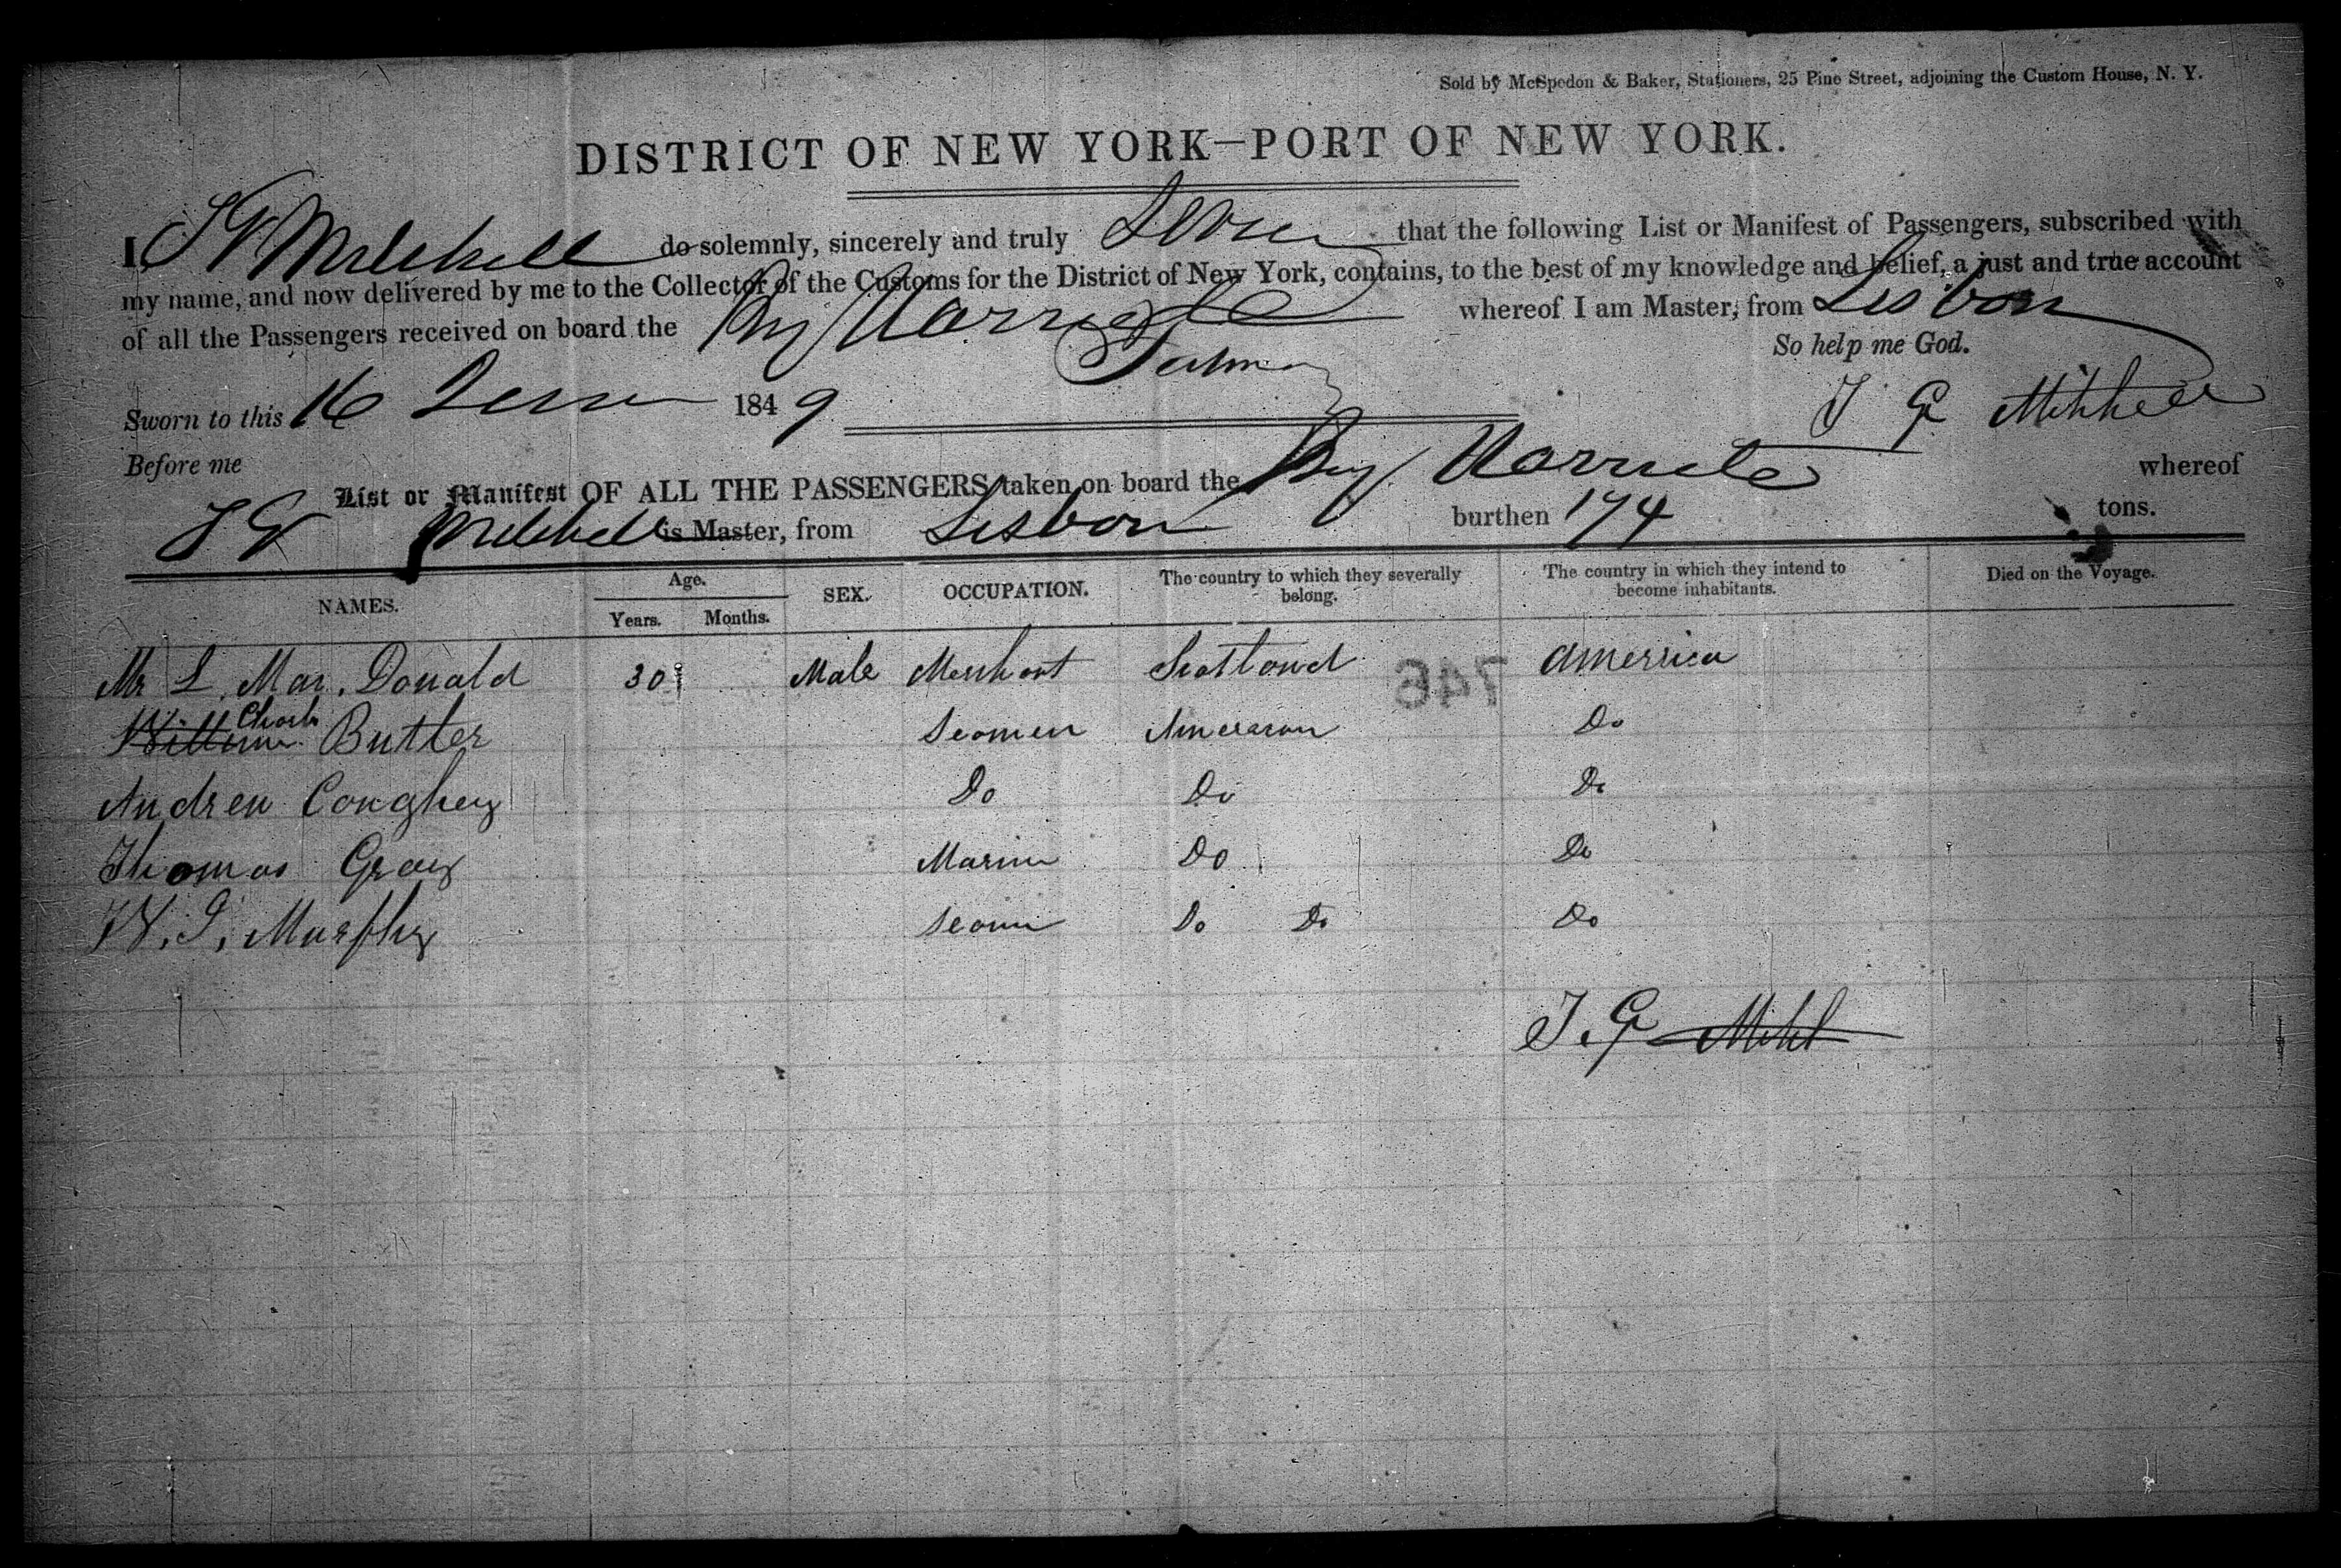 Sold by McSpedon & Baker, Stationers, 25 Pine Street, adjoining the Custom House, N. Y.
DISTRICT OF NEW YORK—PORT OF NEW YORK.
I, J G Mitchell do solemnly, sincerely and truly Swear that the following List or Manifest of Passengers, subscribed with
my name, and now delivered by me to the Collector of the Customs for the District of New York, contains, to the best of my knowledge and belief, a just and true account
of all the Passengers received on board the Brig Harriete whereof I am Master, from Lisbon
So help me God.
Sworn to this 16 1849 J G Mitchell
Before me
List or Manifest OF ALL THE PASSENGERS taken on board the Brig Harriete whereof
J G Mitchell is Master, from Lisbon burthen 174 tons.
NAMES. Age. Years. Months. SEX. OCCUPATION. The country to which they severally belong. The country in which they intend to become inhabitants. Died on the Voyage.
Mr L. Mac. Donald 30 Male Merchant Scotland America
746
William Charls Butler Seamen American Do
Andrew Coughey Do Do Do
Thomas Gray Marine Do Do
W. J. Murphy Seamn Do Do Do
J. G Mitchl